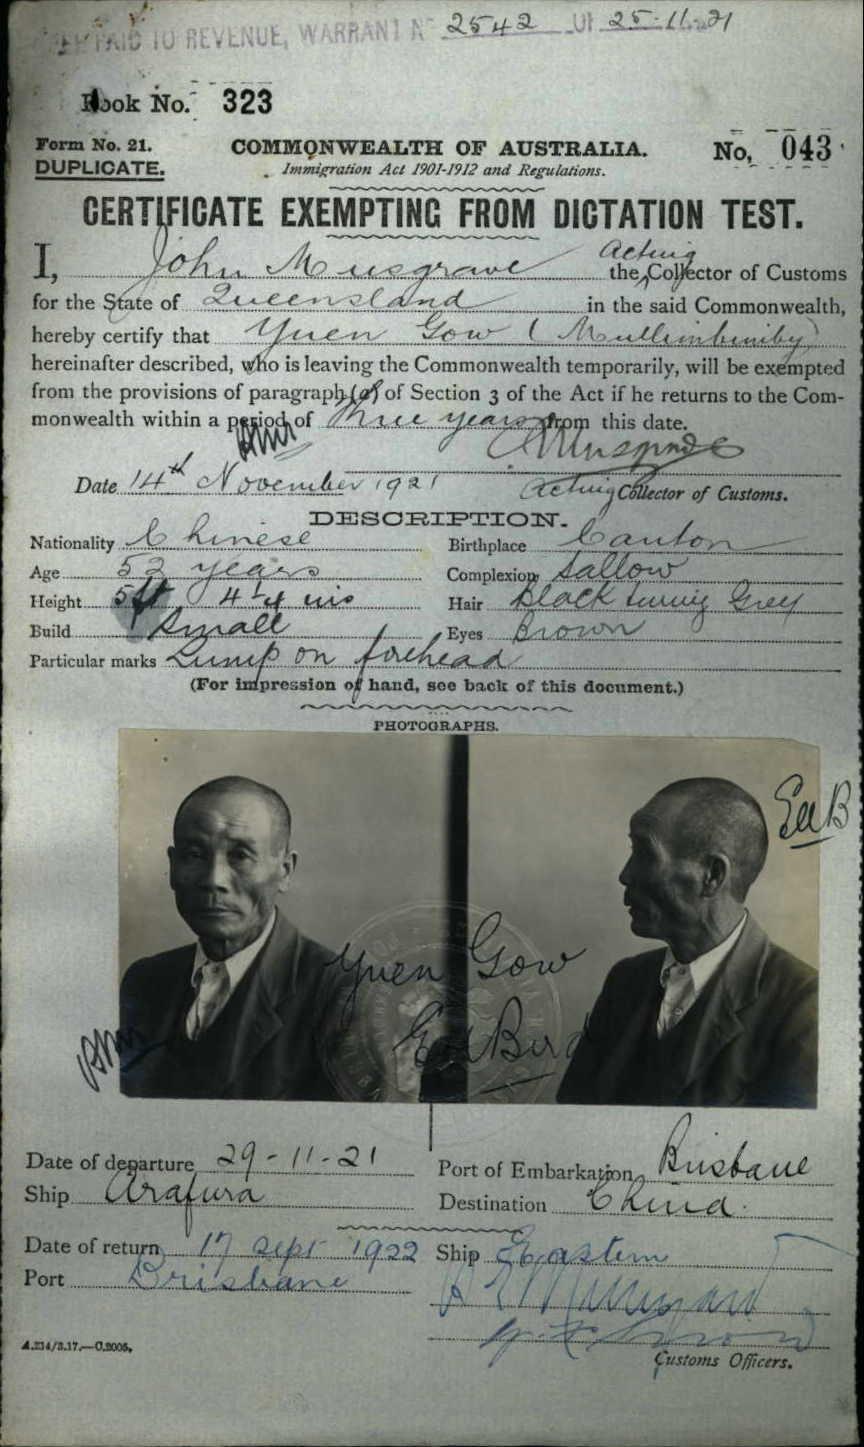 PAID TO REVENUE, WARRANT No 2542 OF 25.11.21
Book No. 323
Form No. 21.
DUPLICATE.
COMMONWEALTH OF AUSTRALIA.
Immigration Act 1901-1912 and Regulations.
No. 043
CERTIFICATE EXEMPTING FROM DICTATION TEST.
I, John Musgrave the Acting Collector of Customs
for the State of Queensland in the said Commonwealth,
hereby certify that Yuen Gow (Mullimbimby)
hereinafter described, who is leaving the Commonwealth temporarily, will be exempted
from the provisions of paragraph (a) of Section 3 of the Act if he returns to the Com-
monwealth within a period of three years from this date.
Date 14th November 1921
Acting Collector of Customs.
DESCRIPTION.
Nationality Chinese
Birthplace Canton
Age 52 years
Complexion Sallow
Height 5ft 4¼ ins
Hair Black turning Grey
Build Small
Eyes Brown
Particular marks Lump on forehead
(For impression of hand, see back of this document.)
PHOTOGRAPHS.
Yuen Gow
Date of departure 29-11-21
Port of Embarkation Brisbane
Ship Arafura
Destination China.
Date of return 17 Sept 1922
Ship Eastern
Port Brisbane
A.214/3.17.—C.2005.
Customs Officers.